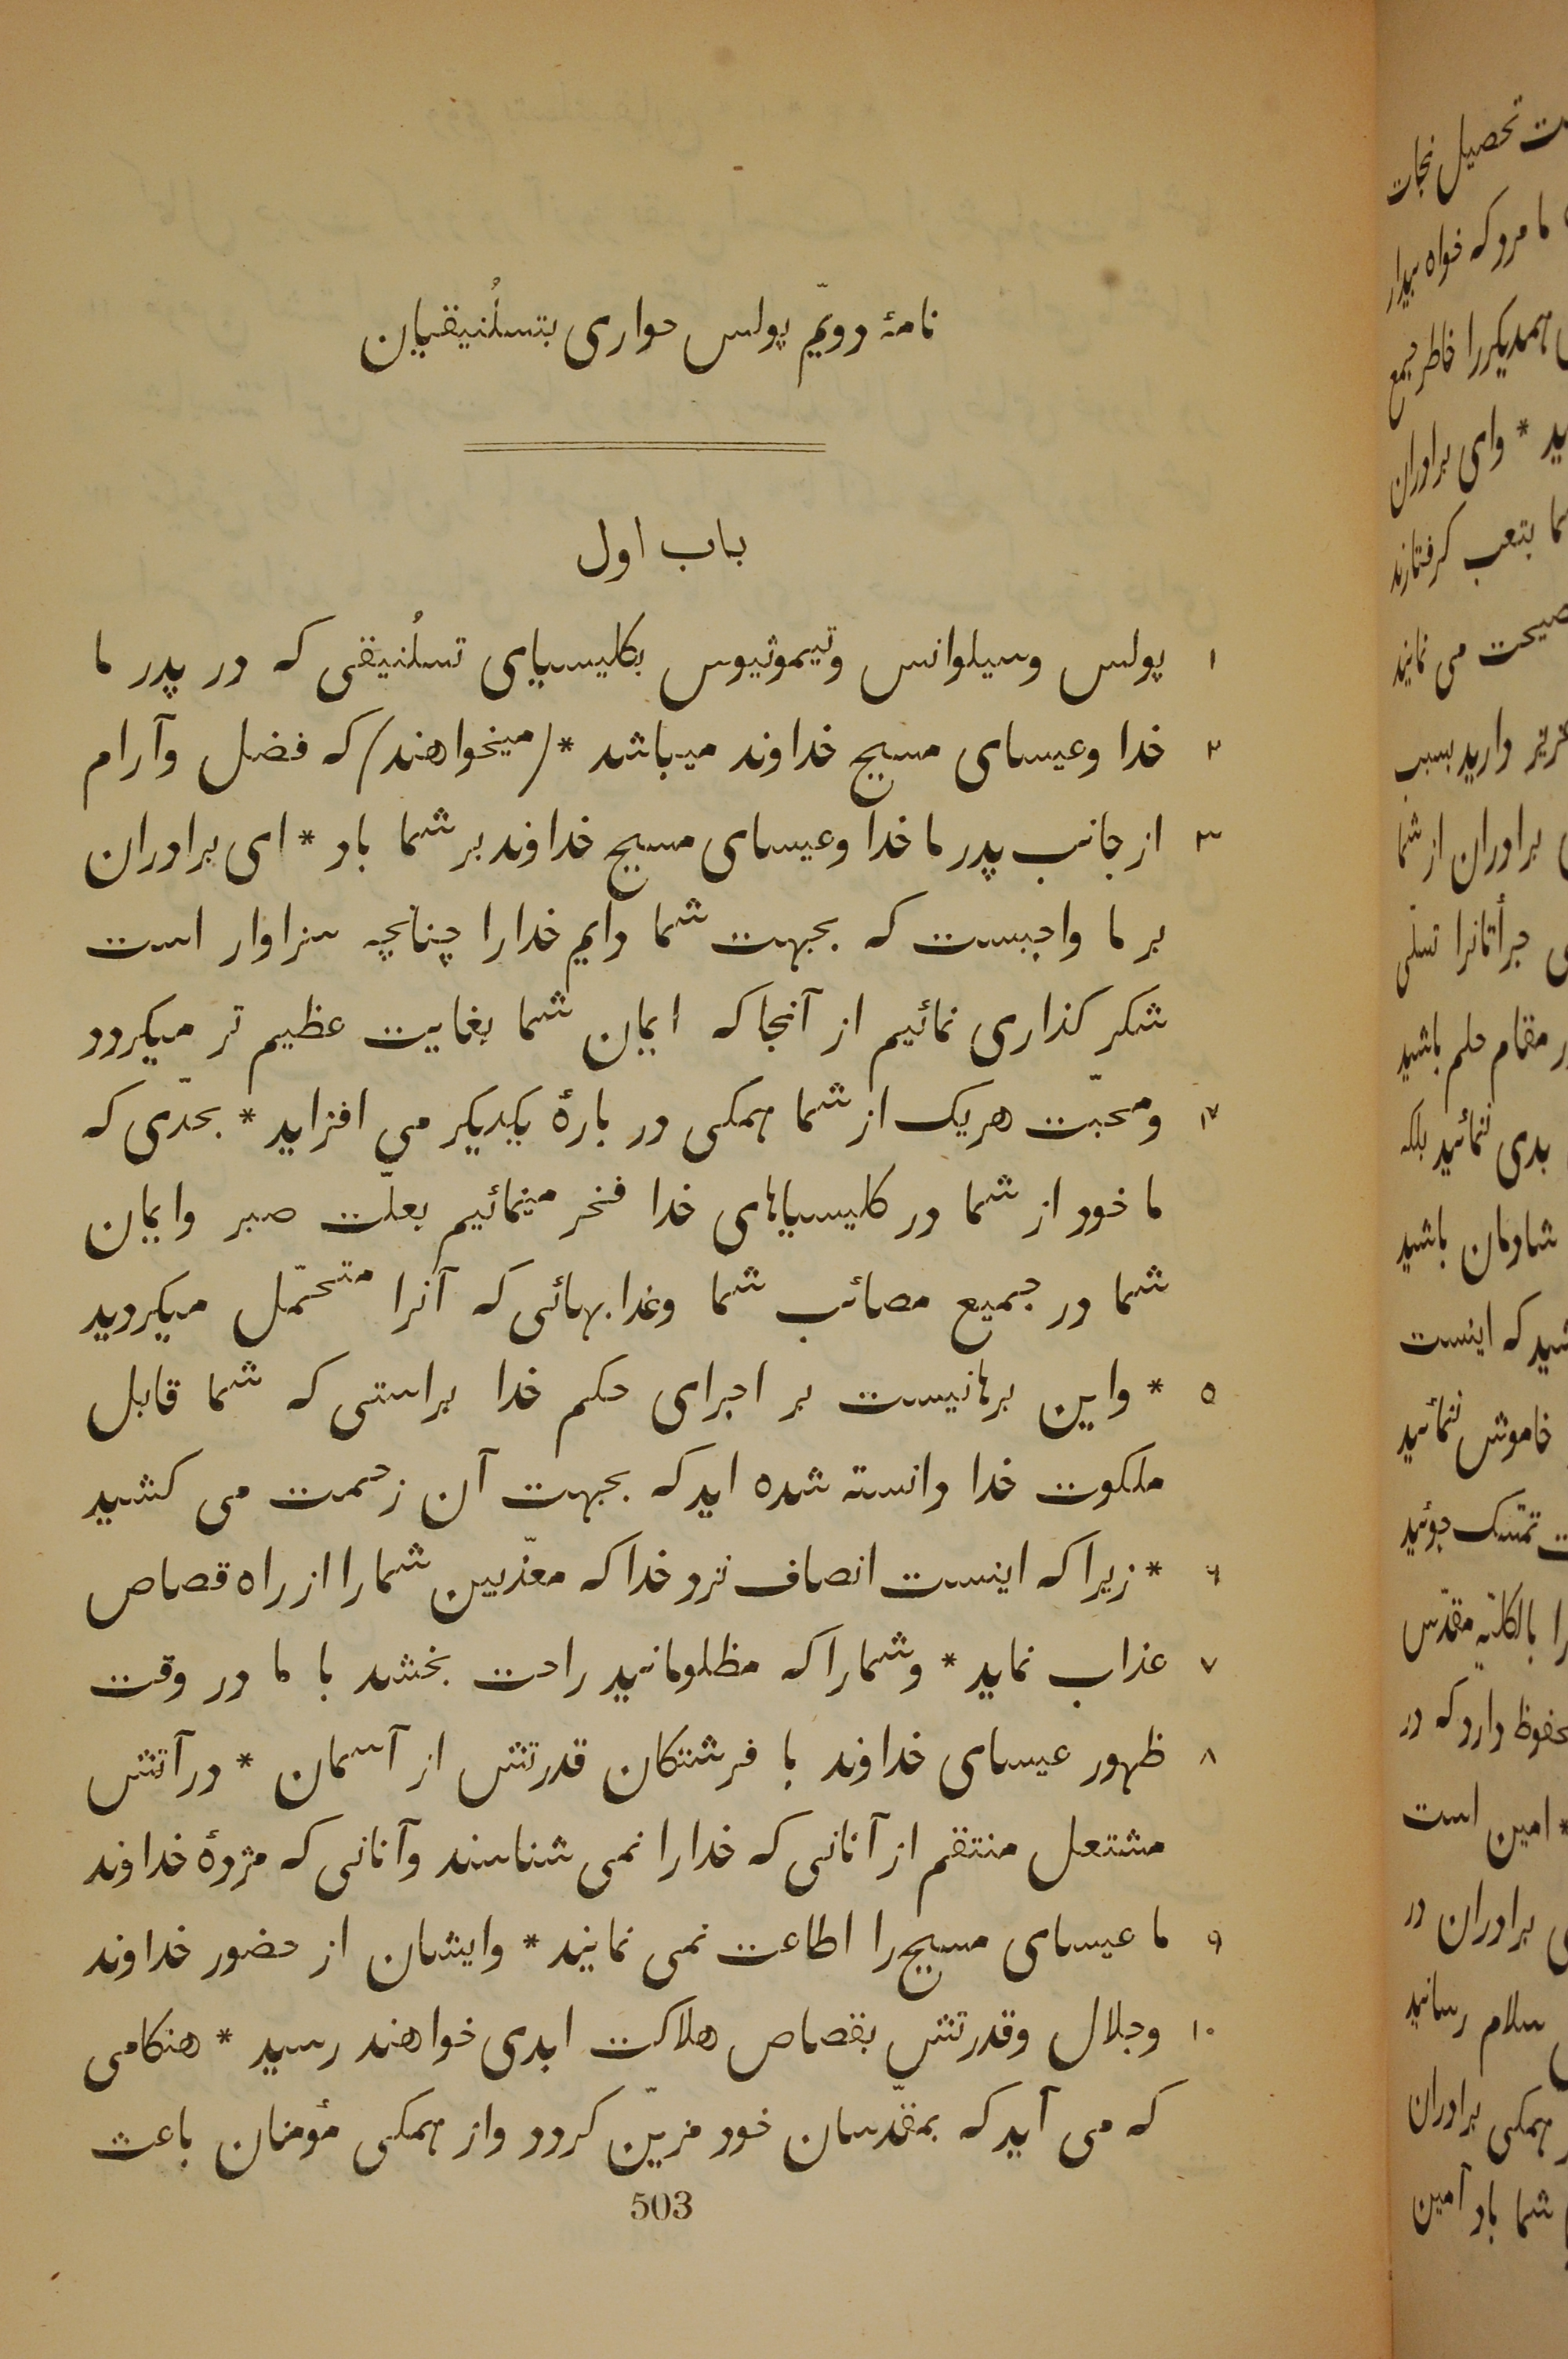 نامهٔ دویّم پولس حواری بتسلُنیقیان
باب اول
۱ پولس وسیلوانس وتیموثیوس بکلیسیای تسلُنیقی که در پدر ما
۲ خدا وعیسای مسیح خداوند میباشد * (میخواهند) که فضل وآرام
۳ از جانب پدر ما خدا وعیسای مسیح خداوند بر شما باد * ای برادران
بر ما واجبست که بجهت شما دایم خدارا چنانچه سزاوار است
شکر کذاری نمائیم از آنجا که ایمان شما بغایت عظیم تر میکردد
۴ ومحبّت هریک از شما همکی در بارهٔ یکدیکر می افزاید * بحدّی که
ما خود از شما در کلیسیاهای خدا فخر مینمائیم بعلّت صبر وایمان
شما در جمیع مصائب شما وعذابهائی که آنرا متحمّل میکردید
۵ * واین برهانیست بر اجرای حکم خدا براستی که شما قابل
ملکوت خدا دانسته شده اید که بجهت آن زحمت می کشید
۶ * زیرا که اینست انصاف نزد خدا که معذّبین شمارا از راه قصاص
۷ عذاب نماید * وشمارا که مظلومانید راحت بخشد با ما در وقت
۸ ظهور عیسای خداوند با فرشتکان قدرتش از آسمان * در آتش
مشتعل منتقم از آنانی که خدارا نمی شناسند وآنانی که مژدهٔ خداوند
۹ ما عیسای مسیح را اطاعت نمی نمایند * وایشان از حضور خداوند
۱۰ وجلال وقدرتش بقصاص هلاکت ابدی خواهند رسید * هنکامی
که می آید که بمقدّسان خود مزیّن کردد واز همکی مؤمنان باعث
503
تحصیل نجات
ما مرد که خواه بیدار
همدیکررا خاطر جمع
* وای برادران
بتعب کرفتارند
می نمایند
دارید بسبب
برادران از شما
جرأتانرا تسلّی
مقام حلم باشید
بدی ننمائید بلکه
شادمان باشید
که اینست
خاموش ننمائید
تمسّک جوئید
بالکلّیه مقدّس
دارد که در
* امین است
برادران در
سلام رسانید
همکی برادران
شما باد آمین